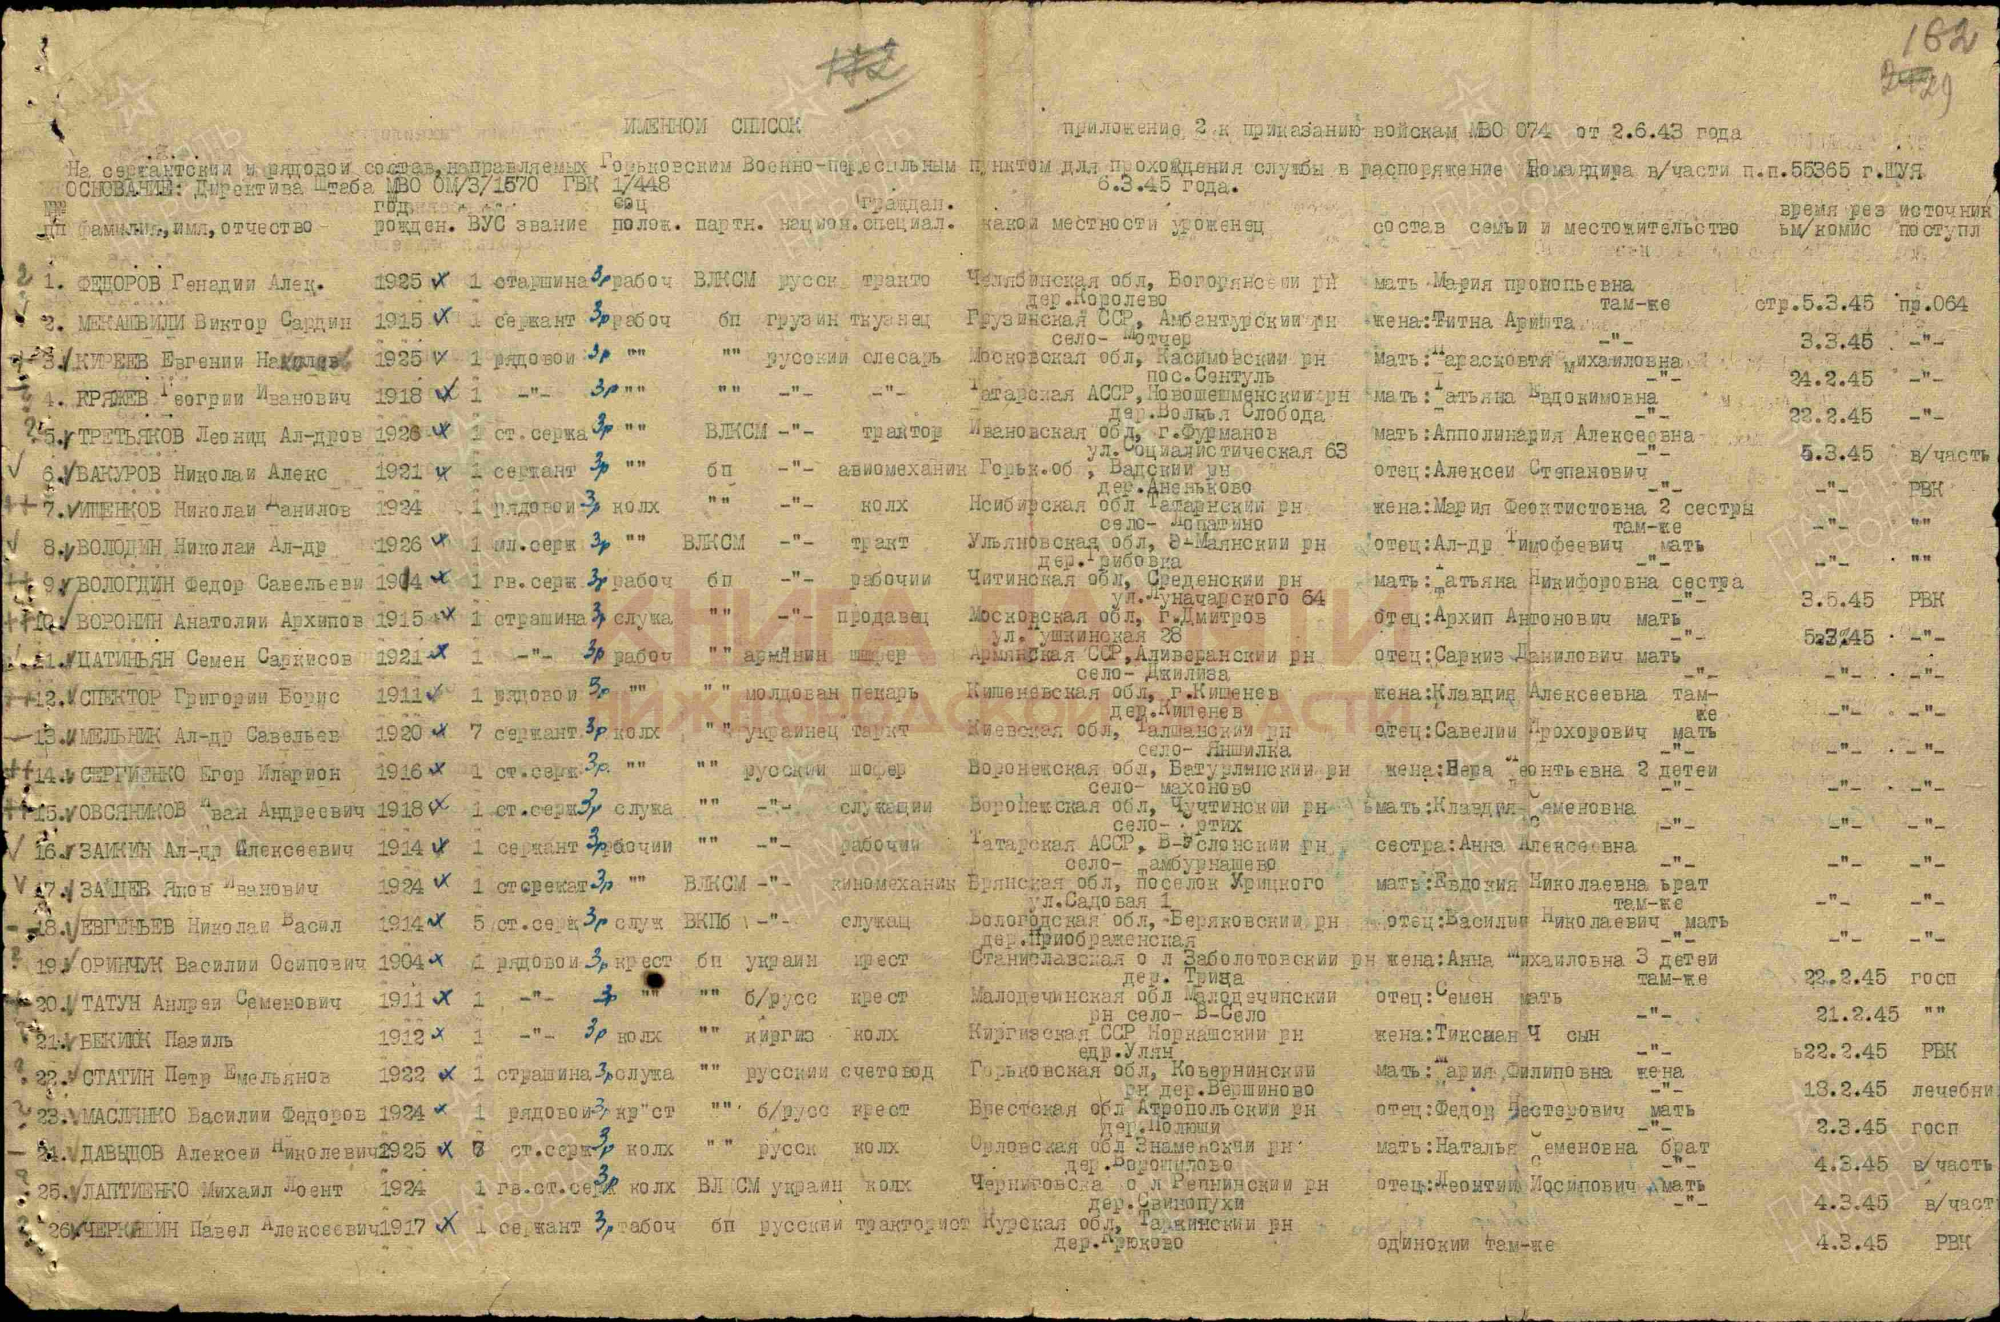 162
29
ИМЕННОИ СПИСОК
приложение 2 к приказанию войскам МВО 074 от 2.6.43 года
На сержантскии и рядовои состав, направляемых Горьковским Военно-пересыльным пунктом для прохождения службы в распоряжение Командира в/части п.п.55365 г.ШУЯ
ОСНОВАНИЕ: Директива Штаба МВО ОМ/3/1570 ГВК 1/448 6.3.45 года.
год соц граждан. время рез источник
пп фамилия,имя,отчество рожден. ВУС звание полож. партн. национ. специал. какой местности уроженец состав семьи и местожительство ьм/комис поступл
1. ФЕДОРОВ Генадии Алек. 1925 1 старшина Зр рабоч ВЛКСМ русск тракто Челябинская обл, Богорянскии рн мать Мария прокопьевна
дер.Королево там-же стр.5.3.45 пр.064
2. МЕКАШВИЛИ Виктор Сардин 1915 1 сержант Зр рабоч бп грузин ткузнец Грузинская ССР, Амбантурскии рн жена:Титна Аришта
село- Мотчер -"- 3.3.45 -"-
3. КИРЕЕВ Евгении 1925 1 рядовои Зр "" "" русскии слесарь Московская обл, Касимовскии рн мать:Парасковтя Михаиловна
пос.Сентуль -"- 24.2.45 -"-
4. КРЯЖЕВ Георгии Иванович 1918 1 -"- Зр "" "" -"- -"- Татарская АССР, Новошешменскии рн мать:Татьяна Евдокимовна
дер.Волчья Слобода -"- 22.2.45 -"-
5. ТРЕТЬЯКОВ Леонид Ал-дров 1926 1 ст.сержа Зр "" ВЛКСМ -"- трактор Ивановская обл, г.Фурманов мать:Апполинария Алексеевна
ул.Социалистическая 63 -"- 5.3.45 в/часть
6. ВАКУРОВ Николаи Алекс 1921 1 сержант Зр "" бп -"- авиомеханик Горьк.об , Вадскии рн отец:Алексеи Степанович
дер.Аненьково -"- -"- РВК
7. ИЩЕНКОВ Николаи Данилов 1924 1 рядовои Зр колх "" -"- колх Нсибирская обл Татарнскии рн жена:Мария Феоктистовна 2 сестры
село- Лопатино там-же -"- ""
8. ВОЛОДИН Николаи Ал-др 1926 1 мл.серж Зр "" ВЛКСМ -"- тракт Ульяновская обл, -Маянскии рн отец:Ал-др Тимофеевич мать
дер.Грибовка -"- -"- ""
9. ВОЛОГДИН Федор Савельеви 1904 1 гв.серж Зр рабоч бп -"- рабочии Читинская обл, Среденскии рн мать:Татьяна Никифоровна сестра
ул.Луначарского 64 -"- 3.5.45 РВК
10. ВОРОНИН Анатолии Архипов 1915 1 страшина Зр служа "" -"- продавец Московская обл, г.Дмитров отец:Архип Антонович мать
ул.Пушкинская 28 -"- 5.3.45 -"-
11. ЦАТИНЬЯН Семен Саркисов 1921 1 -"- Зр рабоч "" армянин шофер Армянская ССР, Аливеранскии рн отец:Саркиз Данилович мать
село- Джилиза -"- -"- -"-
12. СПЕКТОР Григории Борис 1911 1 рядовои Зр "" "" молдован пекарь Кишеневская обл, г.Кишенев жена:Клавдия Алексеевна там-
дер.Кишенев же -"- -"-
13. МЕЛЬНИК Ал-др Савельев 1920 7 сержант Зр колх "" украинец таркт Киевская обл, Талшанскии рн отец:Савелии Прохорович мать
село- Яншилка -"- -"- -"-
14. СЕРГИЕНКО Егор Иларион 1916 1 ст.серж Зр. "" "" русскии шофер Воронежская обл, Батурлинскии рн жена:Вера Леонтьевна 2 детеи
село- махоново -"- -"- -"-
15. ОВСЯНИКОВ Иван Андреевич 1918 1 ст.серж Зр служа "" -"- служащии Воронежская обл, Чучтинскии рн мать:Клавдия Семеновна
село- ртих -"- -"- -"-
16. ЗАИКИН Ал-др Алексеевич 1914 1 сержант Зр бочии "" -"- рабочии Татарская АССР, В-Услонскии рн сестра:Анна Алексеевна
село- Тамбурнашево -"- -"- -"-
17. ЗАЦЕВ Яков Иванович 1924 1 стсрежат Зр "" ВЛКСМ -"- киномеханик Брянская обл, поселок Урицкого мать:Евдокия Николаевна ьрат
ул.Садовая 1 там-же -"- -"-
18. ЕВГЕНЬЕВ Николаи Васил 1914 5 ст.серж Зр служ ВКПб -"- служащ Вологодская обл, Беряковскии рн отец:Василии Николаевич мать
дер.Приображенская -"- -"- -"-
19. ОРИНЧУК Василии Осипович 1904 1 рядовои Зр крест бп украин крест Станиславская о л Заболотовскии рн жена:Анна Михаиловна 3 детеи
дер. Трица там-же 22.2.45 госп
20. ТАТУН Андреи Семенович 1911 1 -"- Зр "" "" б/русс крест Малодечинская обл Малодечинскии отец:Семен мать
рн село- В-Село -"- 21.2.45 ""
21. БЕКИЮК Пазиль 1912 1 -"- Зр колх "" киргиз колх Киргизская ССР Норкашскии рн жена:Тиксман Ч сын
едр.Улян -"- ь22.2.45 РВК
22. СТАТИН Петр Емельянов 1922 1 страшина Зр служа "" русскии счетовод Горьковская обл, Ковернинскии мать:Мария Филиповна жена
рн дер.Вершиново -"- 18.2.45 лечебни
23. МАСЛЯНКО Василии Федоров 1924 1 рядовои Зр кр"ст "" б/русс крест Брестская обл Атропольскии рн отец:Федор Нестерович мать
дер.Полюши -"- 2.3.45 госп
24. ДАВЫДОВ Алексеи Николевич 1925 ст.серж Зр колх "" русск колх Орловская обл Знаменскии рн мать:Наталья Семеновна брат
дер.Ворошилово -"- 4.3.45 в/часть
25. ЛАПТИЕНКО Михаил Лоент 1924 1 гв.ст.серж Зр колх ВЛКСМ украин колх Черниговска о л Репнинскии рн отец:Леонтии Иосипович мать
дер.Свинопухи -"- 4.3.45 в/част
26. ЧЕРКАШИН Павел Алексеевич 1917 1 сержант Зр табоч бп русскии тракторист Курская обл, Таркинскии рн
дер.Крюково одинокии там-же 4.3.45 РВК
КНИГА ПАМЯТИ
НИЖЕГОРОДСКОЙ ОБЛАСТИ
ПАМЯТЬ НАРОДА